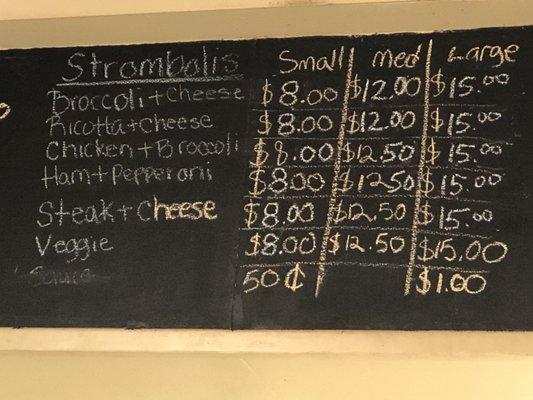 Strombolis Small med Large
Broccoli + Cheese $8.00 $12.00 $15.00
Ricotta + cheese $8.00 $12.00 $15.00
Chicken + Broccoli $8.00 $12.50 $15.00
Ham + Pepperoni $8.00 $12.50 $15.00
Steak + cheese $8.00 $12.50 $15.00
Veggie $8.00 $12.50 $15.00
Sauce 50¢ $1.00